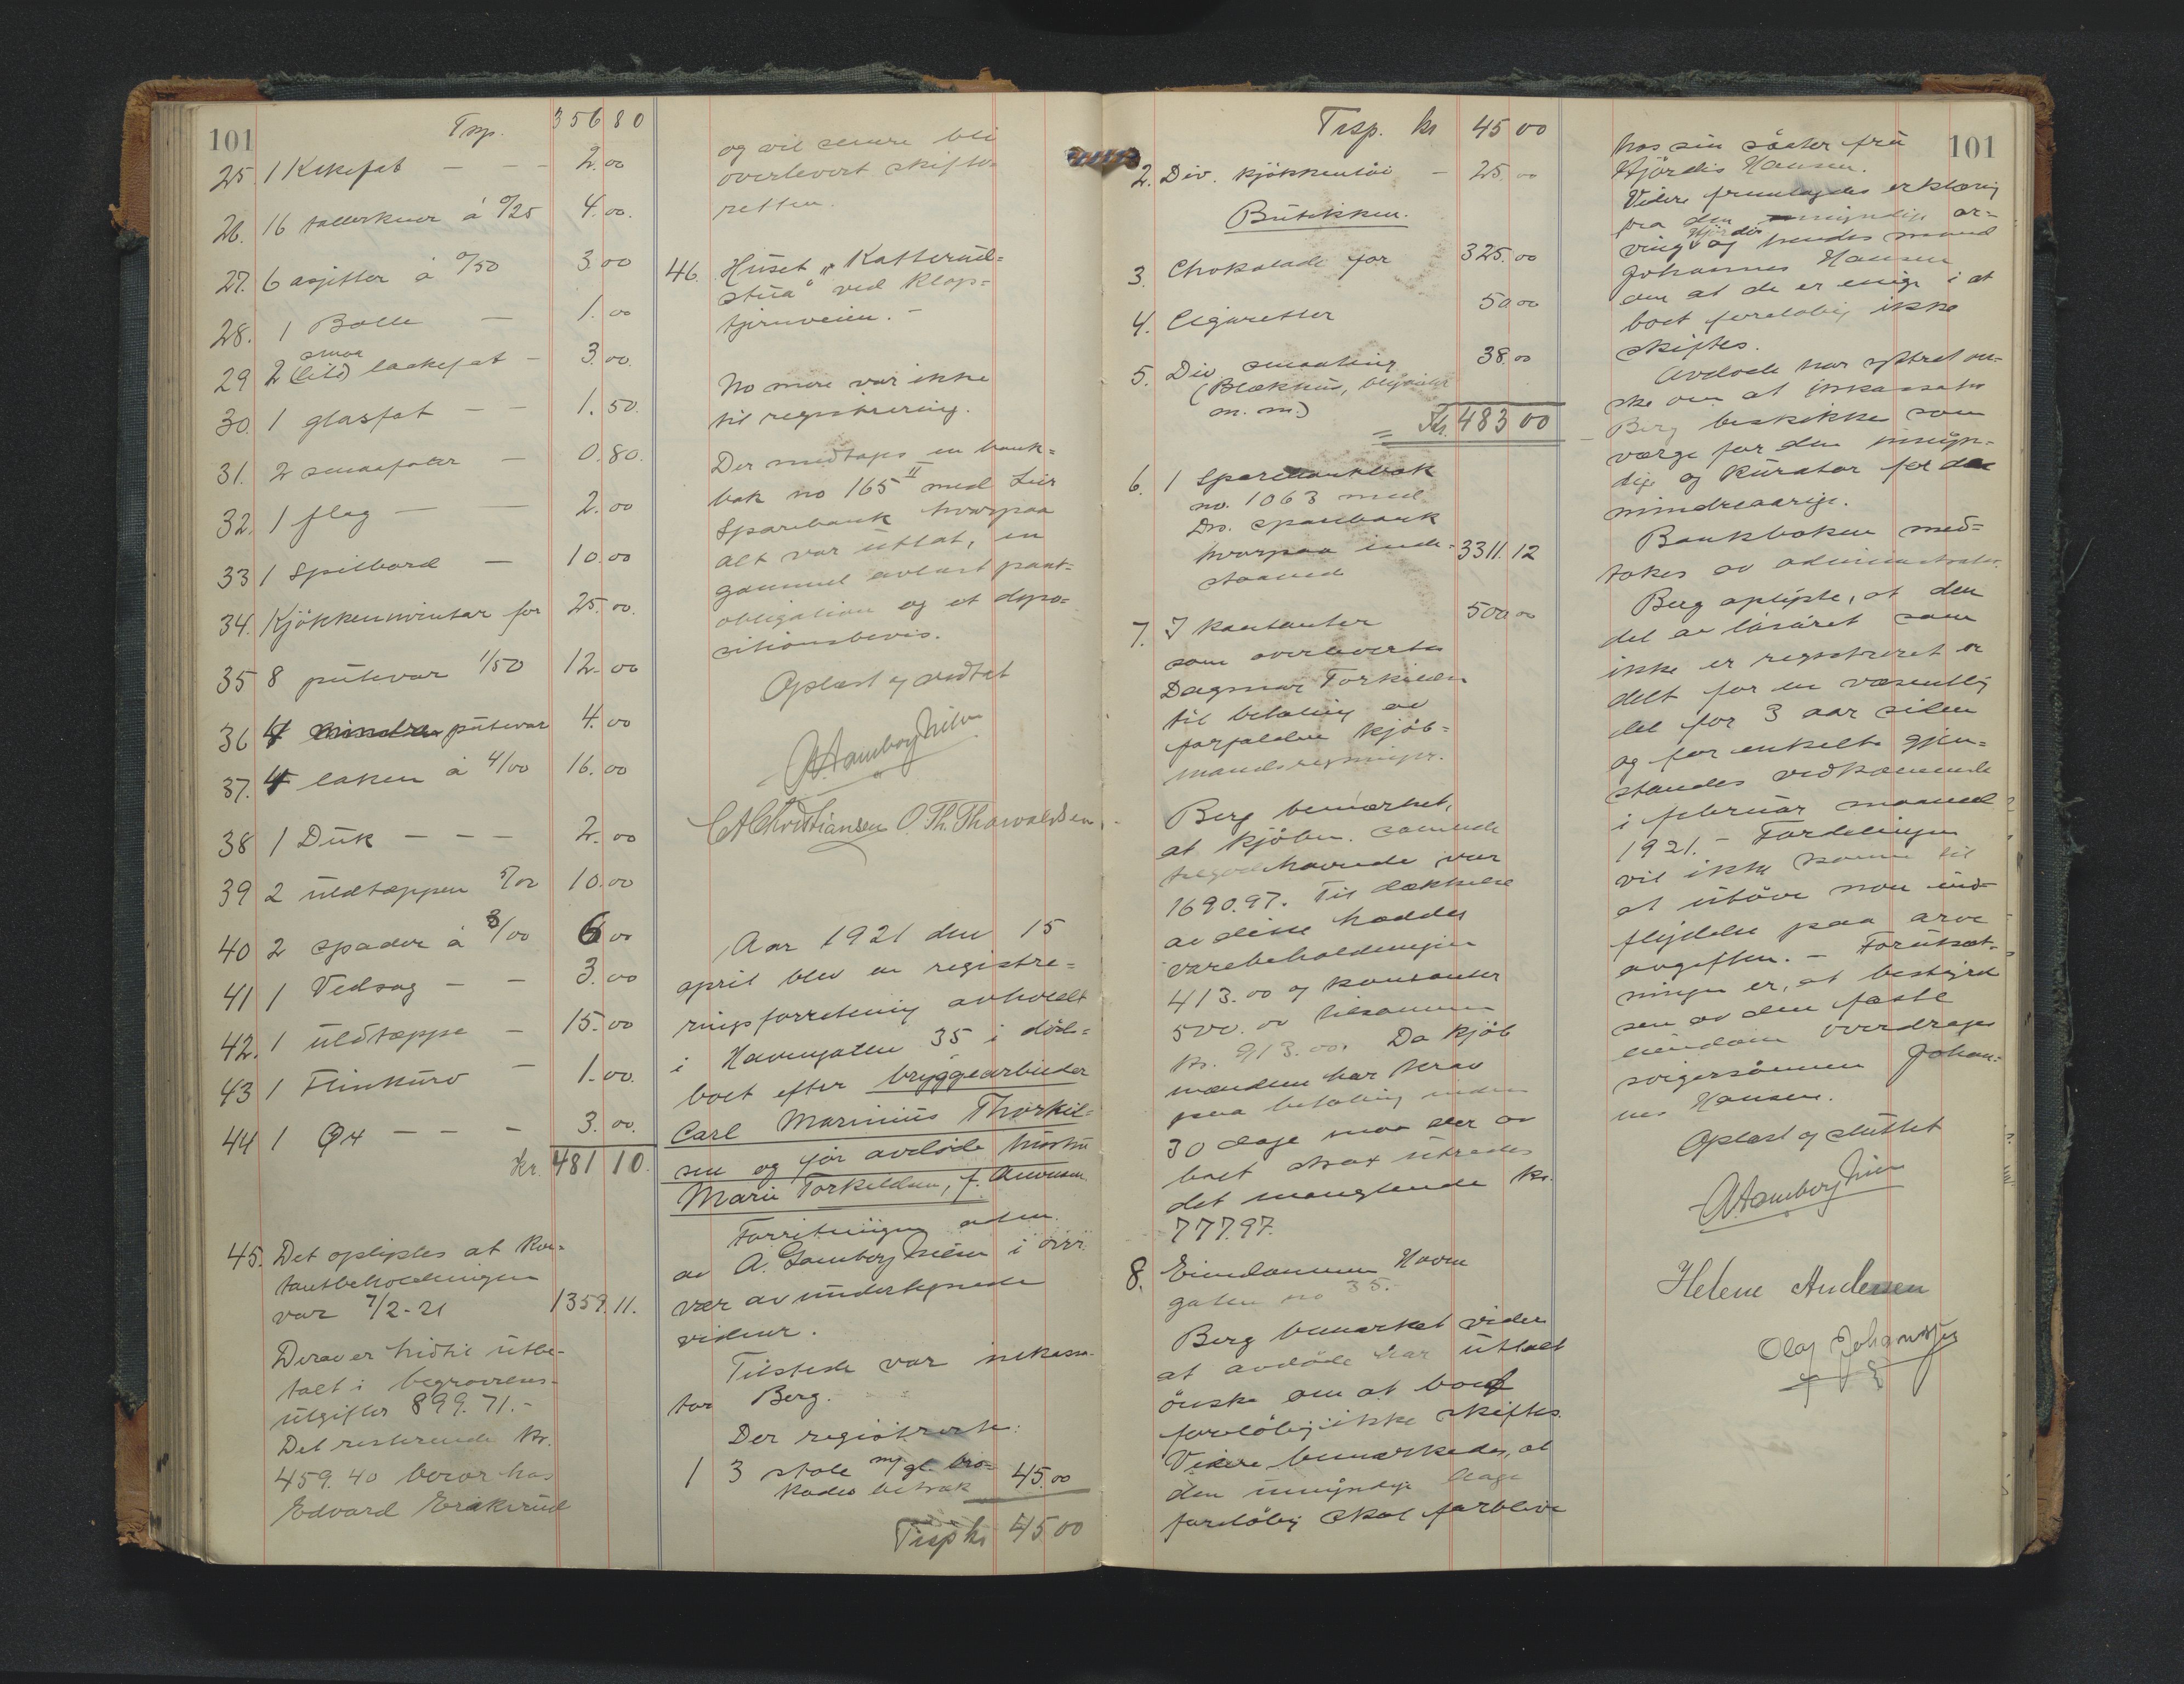 101
Trsp. 356 80
25. 1 Kakefat - - - 2.00
26. 16 tallerkner á 0/25 4.00.
27. 6 asjetter á 0/50 3.00
28. 1 Bolle - 1.00
29 2 smaa (lild) kakefat - 3.00.
30. 1 glasfat - - 1.50.
31. 2 smaafater - 0.80.
32. 1 flag - - 2.00
33 1 Spilbord - 10.00
34. Kjökkeninventar for 25.00.
35 8 putevar 1/50 12.00
36 4 mindre putevar 4.00
37. 4 laken á 4/00 16.00
38 1 Duk - - - 2.00
39 2 uldtæpper 5/00 10.00
40 2 spader á 3/00 6.00
41 1 Vedsag - - 3.00
42. 1 uldtæppe - 15.00
43 1 Flinkurv - 1.00.
44 1 Öx - - - 3.00.
Kr. 481 10.
45. Det oplystes at kon-
tantbeholdningen
var 7/2-21 1359.11.
Derav er hidtil utbe-
talt i begravelses-
utgifter 899.71.-
Det resterende kr.
459.40 beror hos
Edvard Eriksrud
og vil senere bli
overlevert skifte-
retten.
46. Huset "Katterud-
stua" ved Klop-
tjernveien. -
No mere var ikke
til registrering.
Der medtages en bank-
bok no 165 II med Lier
Sparebank hvorpaa
alt var uttat, en
gammel avlast pant-
obligation og et depo-
sitionsbevis.
Oplæst og vedtat
A. Gamborg Nilsen
C A Christiansen O. Th. Thorvaldsen.
Aar 1921 den 15
april blev en registre-
ringsforretning avholdt
i Havnegaten 35 i döds-
boet efter bryggearbeider
Carl Marinius Thorkil-
sen og för avdöde hustru
Marie Torkildsen, f. Amundsen.
Forretningen adm.
av A. Gamborg Nilsen i over-
vær av undertegnede
vidner.
Tilstede var inkassa-
tor Berg.
Der registrertes:
1 3 stole m/ gl. bro-
kades betræk 45.00
Trsp kr 45 00
101
Trsp. kr 45 00
2. Div. kjökkentöi - 25.00
Butikken.
3. Chokolade for 325.00
4. Cigaretter 50 00
5. Div. smaating 38.00
(Blækhus, blyanter
m. m.)
= Kr. 483 00
6. 1 Sparebankbok
no. 1063 med
Dr. sparebank
hvorpaa inde- 3311.12
staaende
7. I kontanter 500 00
som overleverte
Dagmar Torkildsen
til betaling av
forfaldne kjöb-
mandsregninger.
Berg bemærket,
at kjöbm. samlede
tilgodehavende var
1690.97. Til dækkelse
av disse haddes
varebeholdningen
413.00 og kontanter
500.00 tilsammen
kr. 913.00. Da kjöb
mændene har krav
paa betaling inden
30 dage maa der av
boet strax utredes
det manglende kr.
777.97.
8. Eiendommen Havne
gaten no 35.
Berg bemærket videre
at avdöde har uttalt
önske om at boet
forelöbig ikke skiftes.
Videre bemærkedes, at
den umyndige Aage
forelöbig skal forblive
hos sin söster fru
Hjördis Hansen.
Videre fremlagdes erklæring
fra den myndige ar-
ving Hjördis og hendes mand
Johannes Hansen
om at de er enige i at
boet forelöbig ikke
skiftes.
Avdöde har ytret öns-
ke om at inkassator
Berg beskikkes som
værge for den umyn-
dige og kurator for den
mindreaarige.
Bankboken med-
tokes av administrator.
Berg oplyste, at den
del av lösöret som
ikke er registreret er
delt for en væsentlig
del for 3 aar siden
og for enkelte gjen-
standes vedkommende
i februar maaned
1921. - Fordelingen
vil ikke komme til
at utöve noen ind-
flydelse paa arve-
avgiften. - Forutsæt-
ningen er, at bestyrel-
sen av den faste
eiendom overdrages
svigersönnen Johan-
nes Hansen.
Oplæst og sluttet
A. Gamborg Nilsen
Helene Andersen
Olaf Johansen